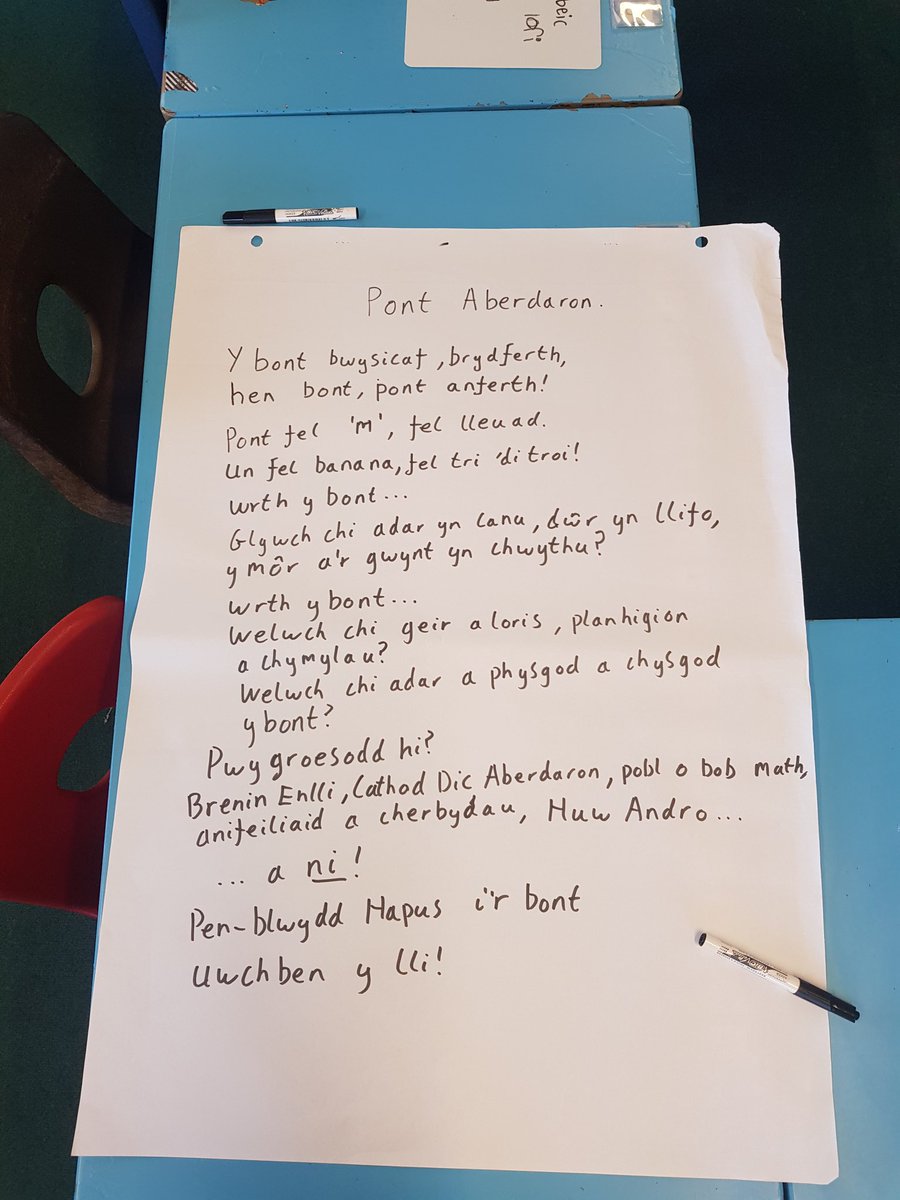 beic
lori
Pont Aberdaron.
Y bont bwysicaf, brydferth,
hen bont, pont anferth!
Pont fel 'm', fel lleuad.
Un fel banana, fel tri 'di troi!
Wrth y bont...
Glywch chi adar yn canu, dŵr yn llifo,
y môr a'r gwynt yn chwythu?
Wrth y bont...
Welwch chi geir a loris, planhigion
a chymylau?
Welwch chi adar a physgod a chysgod
y bont?
Pwy groesodd hi?
Brenin Enlli, Cathod Dic Aberdaron, pobl o bob math,
anifeiliaid a cherbydau, Huw Andro...
... a ni!
Pen-blwydd Hapus i'r bont
Uwchben y lli!